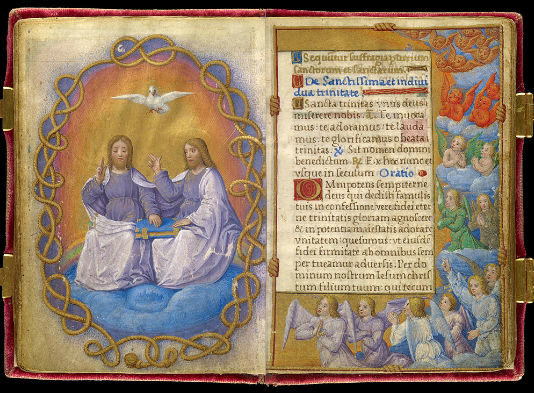 Sequũtur suffragia plurium
sanctorum et sanctarum
De Sanctissima et indiui
dua trinitate
Sancta trinitas vnus deus:
miserere nobis. Te inuoca
mus: te adoramus: te lauda
mus: te glorificamus o beata
trinitas. Sit nomen domini
benedictum. Ex hoc nunc et
vsque in seculum Oratio
Omnipotens sempiterne
deus qui dedisti famulis
tuis in confessione vere fidei eter
ne trinitatis gloriam agnoscere
& in potentia maiestatis adorare
vnitatem: quesumus: vt eiusdẽ
fidei firmitate ab omnibus sem
per tueamur aduersis. Per do
minum nostrum Iesum chris
tum filium tuum: qui tecum